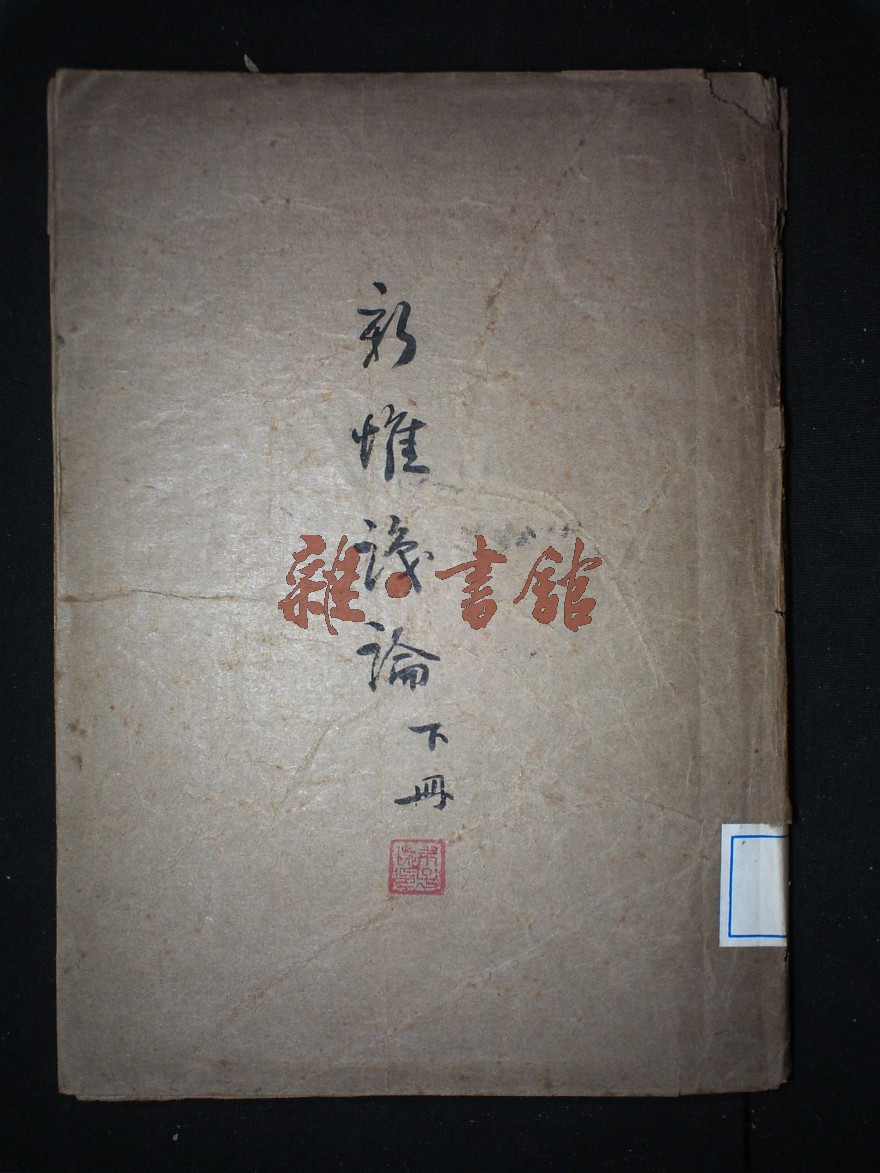 新惟識論
下冊
雜·書館